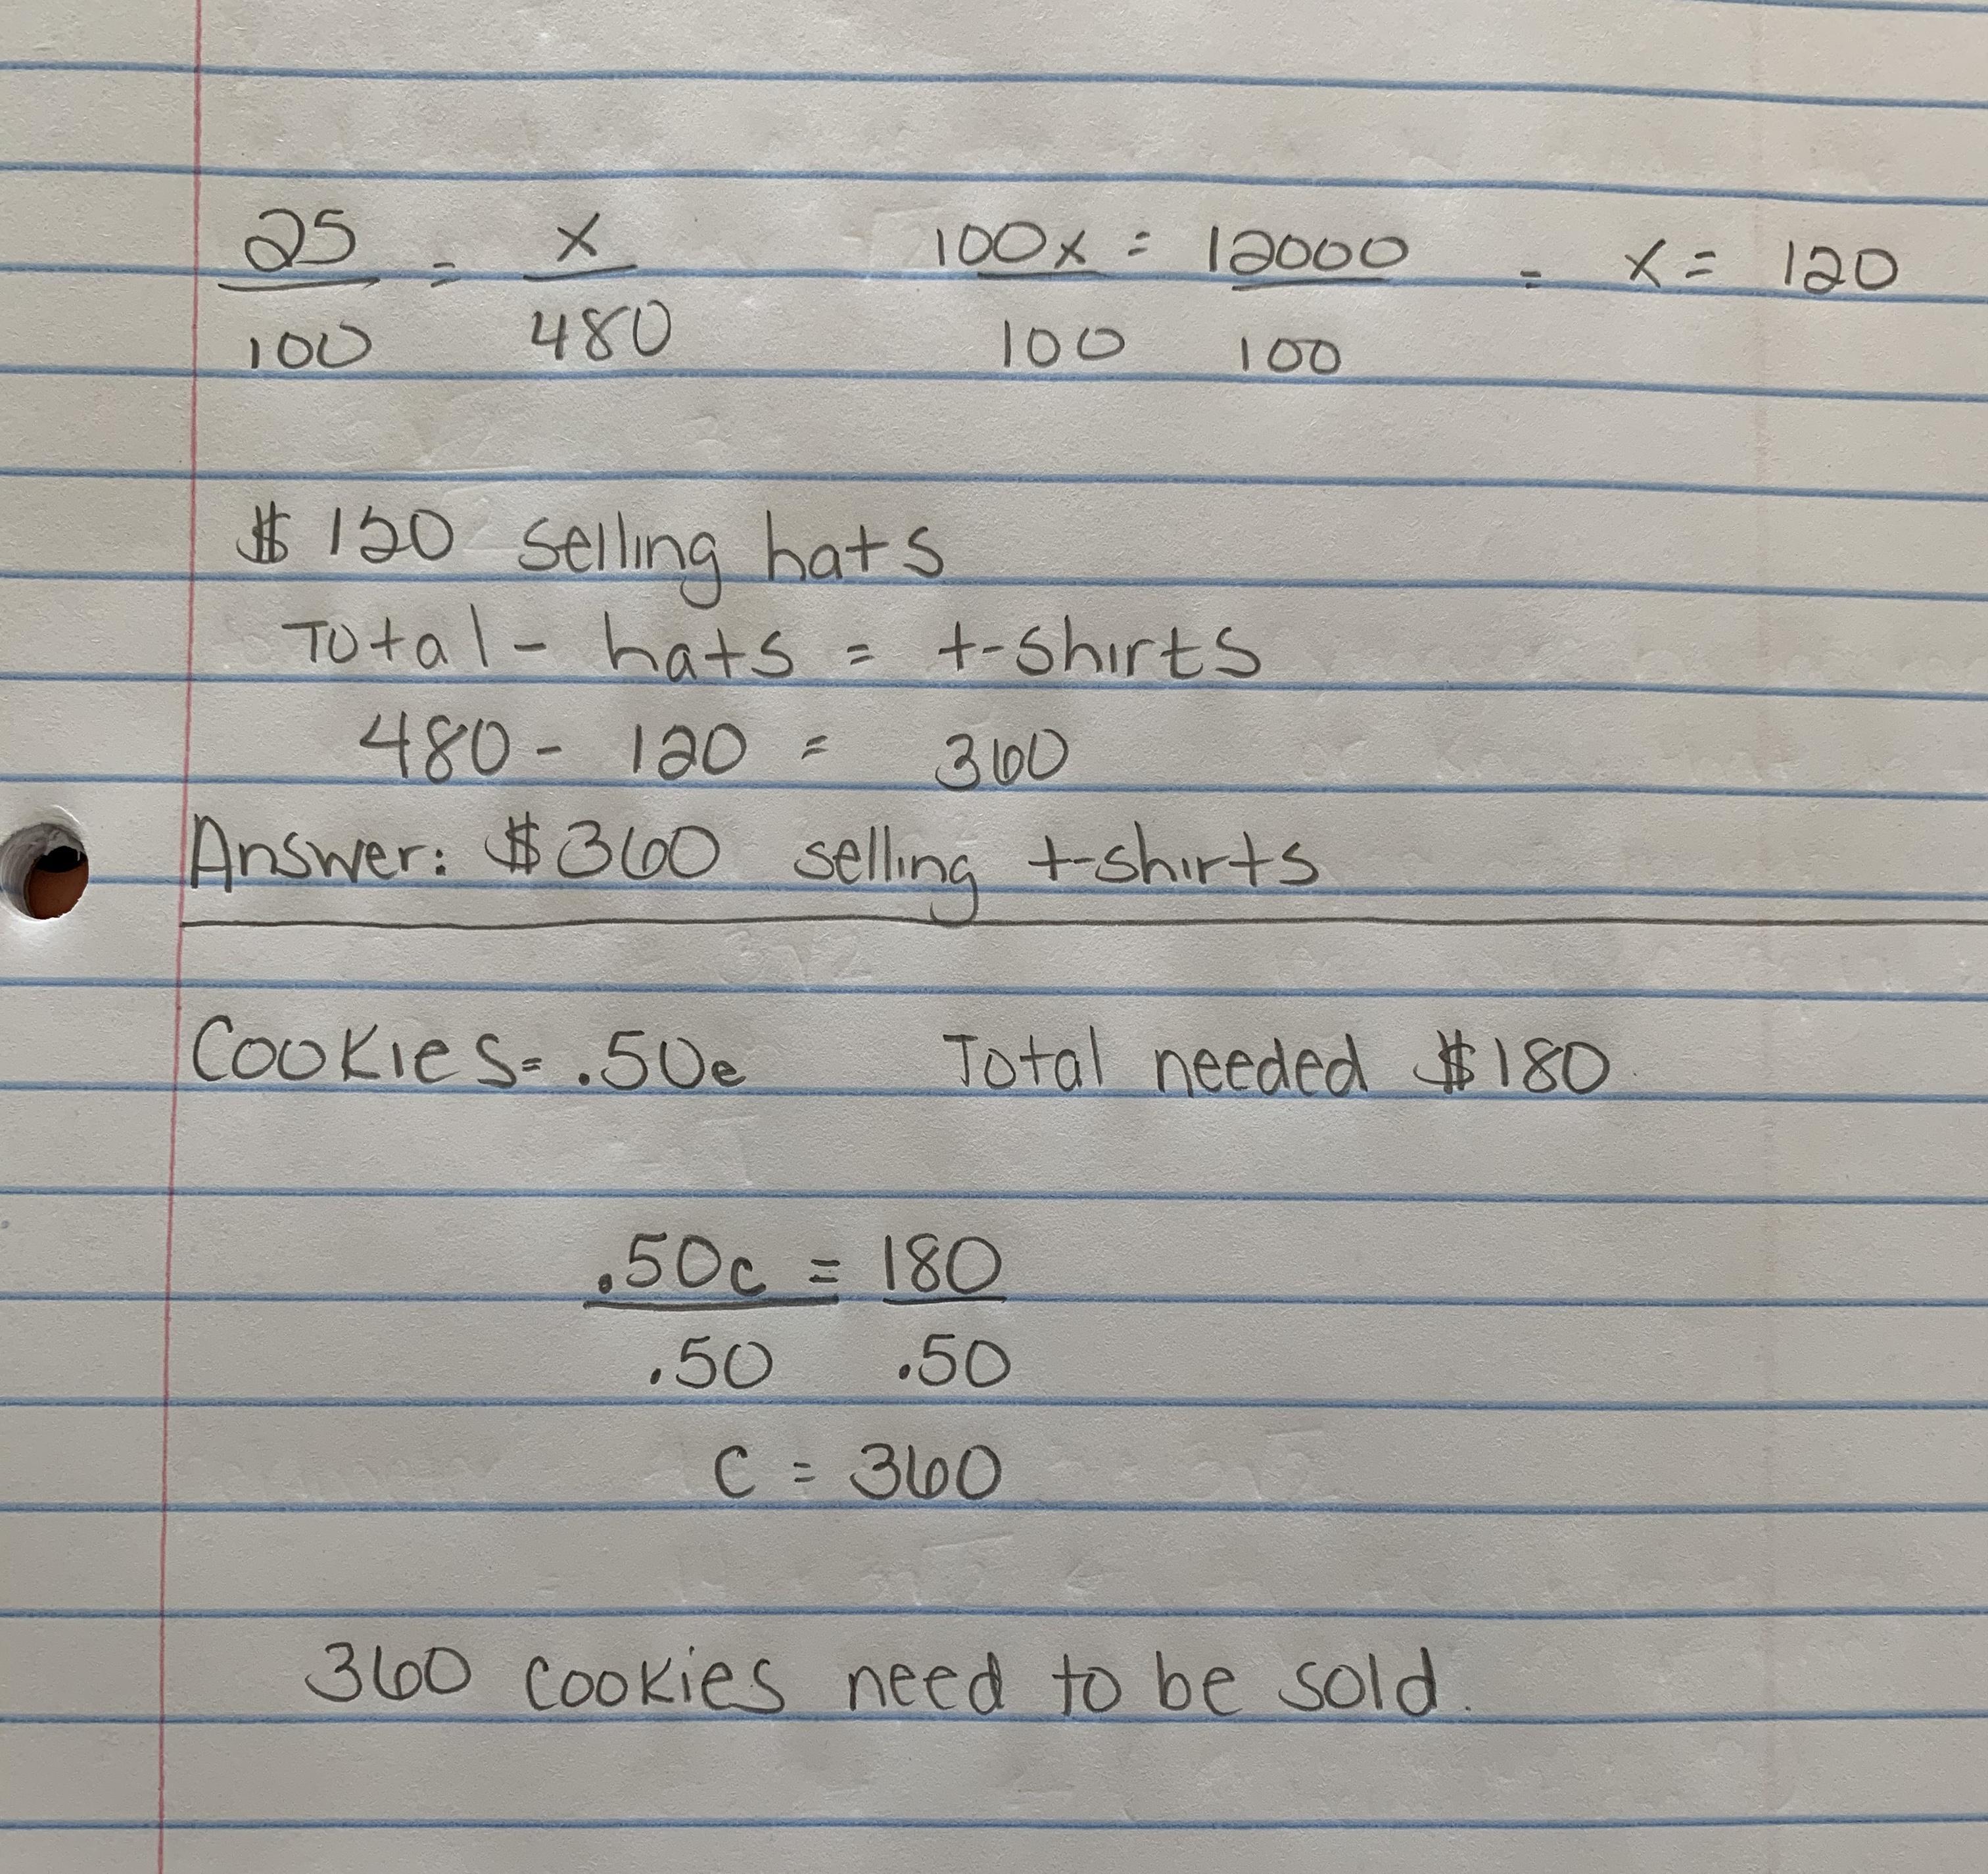 25 = x 100x = 12000 = x = 120
100 480 100 100
$120 selling hats
Total - hats = t-shirts
480 - 120 = 360
Answer: $360 selling t-shirts
Cookies = .50e Total needed $180
.50c = 180
.50 .50
c = 360
360 cookies need to be sold.